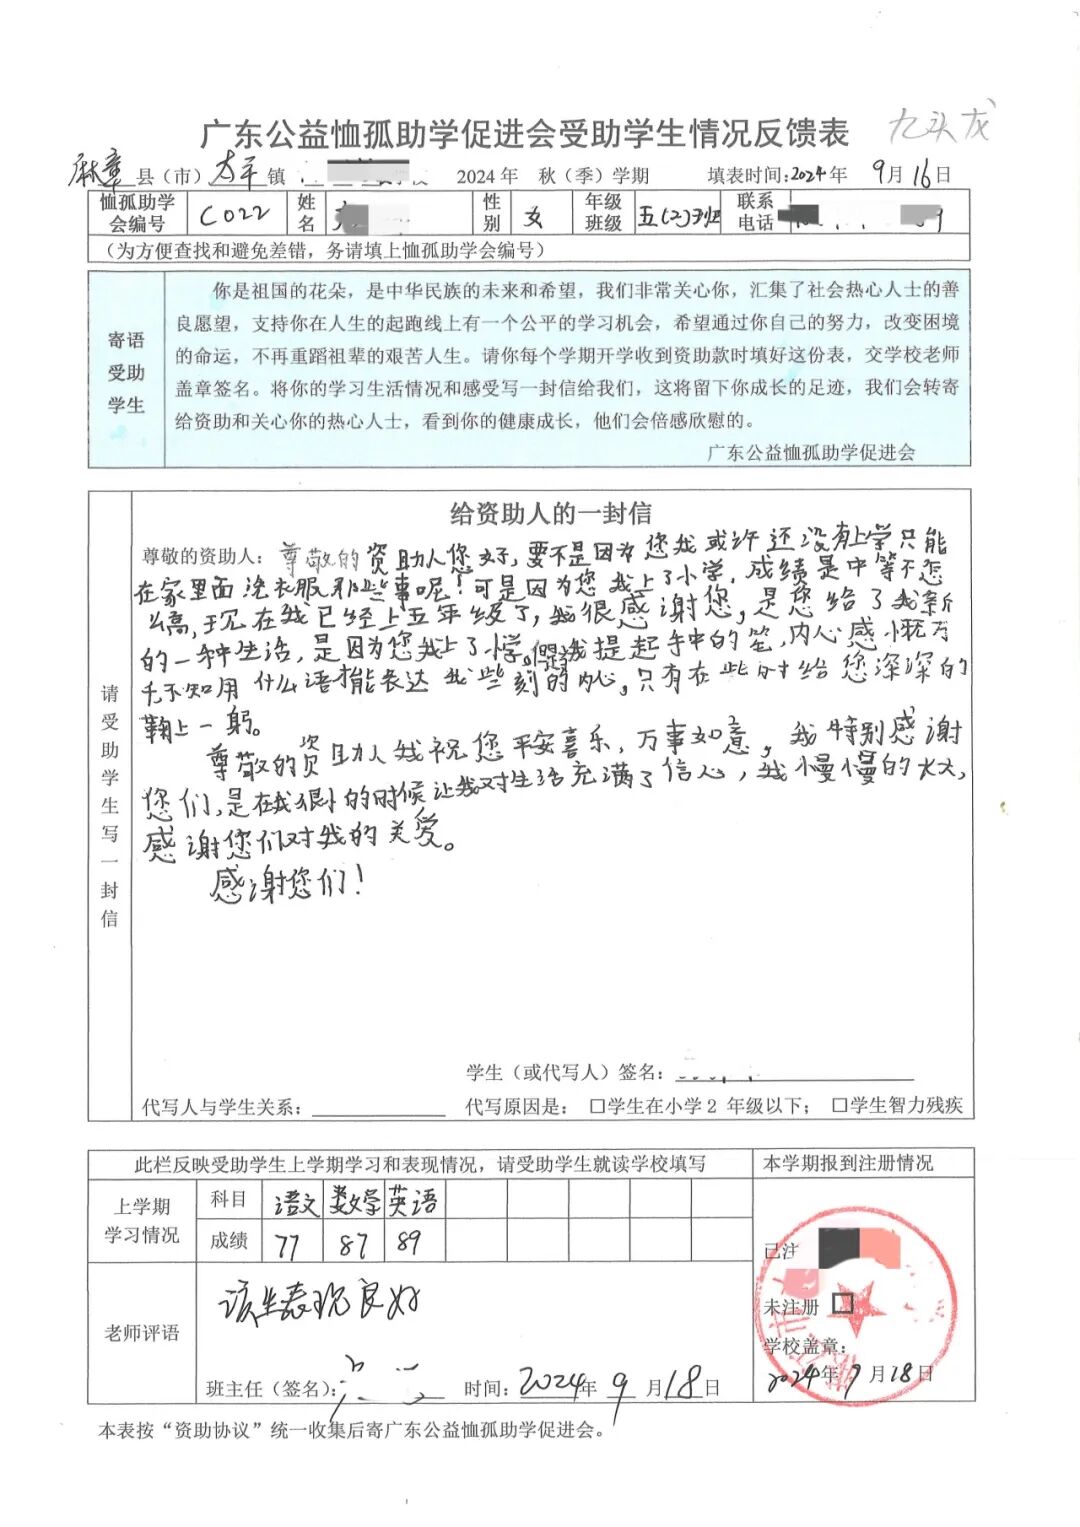 广东公益恤孤助学促进会受助学生情况反馈表 九头龙
麻章县（市）太平镇 2024年 秋（季）学期 填表时间:2024年 9月16日
恤孤助学会编号 C022 姓名 性别 女 年级班级 五(2)班 联系电话
（为方便查找和避免差错，务请填上恤孤助学会编号）
寄语受助学生
你是祖国的花朵，是中华民族的未来和希望，我们非常关心你，汇集了社会热心人士的善
良愿望，支持你在人生的起跑线上有一个公平的学习机会，希望通过你自己的努力，改变困境
的命运，不再重蹈祖辈的艰苦人生。请你每个学期开学收到资助款时填好这份表，交学校老师
盖章签名。将你的学习生活情况和感受写一封信给我们，这将留下你成长的足迹，我们会转寄
给资助和关心你的热心人士，看到你的健康成长，他们会倍感欣慰的。
广东公益恤孤助学促进会
请受助学生写一封信
给资助人的一封信
尊敬的资助人：尊敬的资助人您好，要不是因为您我或许还没有上学只能
在家里面洗衣服那些事呢！可是因为您我上了小学，成绩是中等不怎
么高，现在我已经上五年级了，我很感谢您，是您给了我新
的一种生活，是因为您我上了小学。我提起手中的笔，内心感慨万
千不知用什么语才能表达我些刻的内心，只有在些时给您深深的
鞠上一躬。
尊敬的资助人我祝您平安喜乐，万事如意，我特别感谢
您们，是在我很小的时候让我对生活充满了信心，我慢慢的大大，
感谢您们对我的关爱。
感谢您们！
学生（或代写人）签名：
代写人与学生关系： 代写原因是： □学生在小学2 年级以下； □学生智力残疾
此栏反映受助学生上学期学习和表现情况，请受助学生就读学校填写 本学期报到注册情况
上学期学习情况 科目 语文 数学 英语
成绩 77 87 89
已注
未注册 □
学校盖章：
2024年9月18日
老师评语 该生表现良好
班主任（签名）： 时间：2024年 9 月18日
本表按“资助协议”统一收集后寄广东公益恤孤助学促进会。